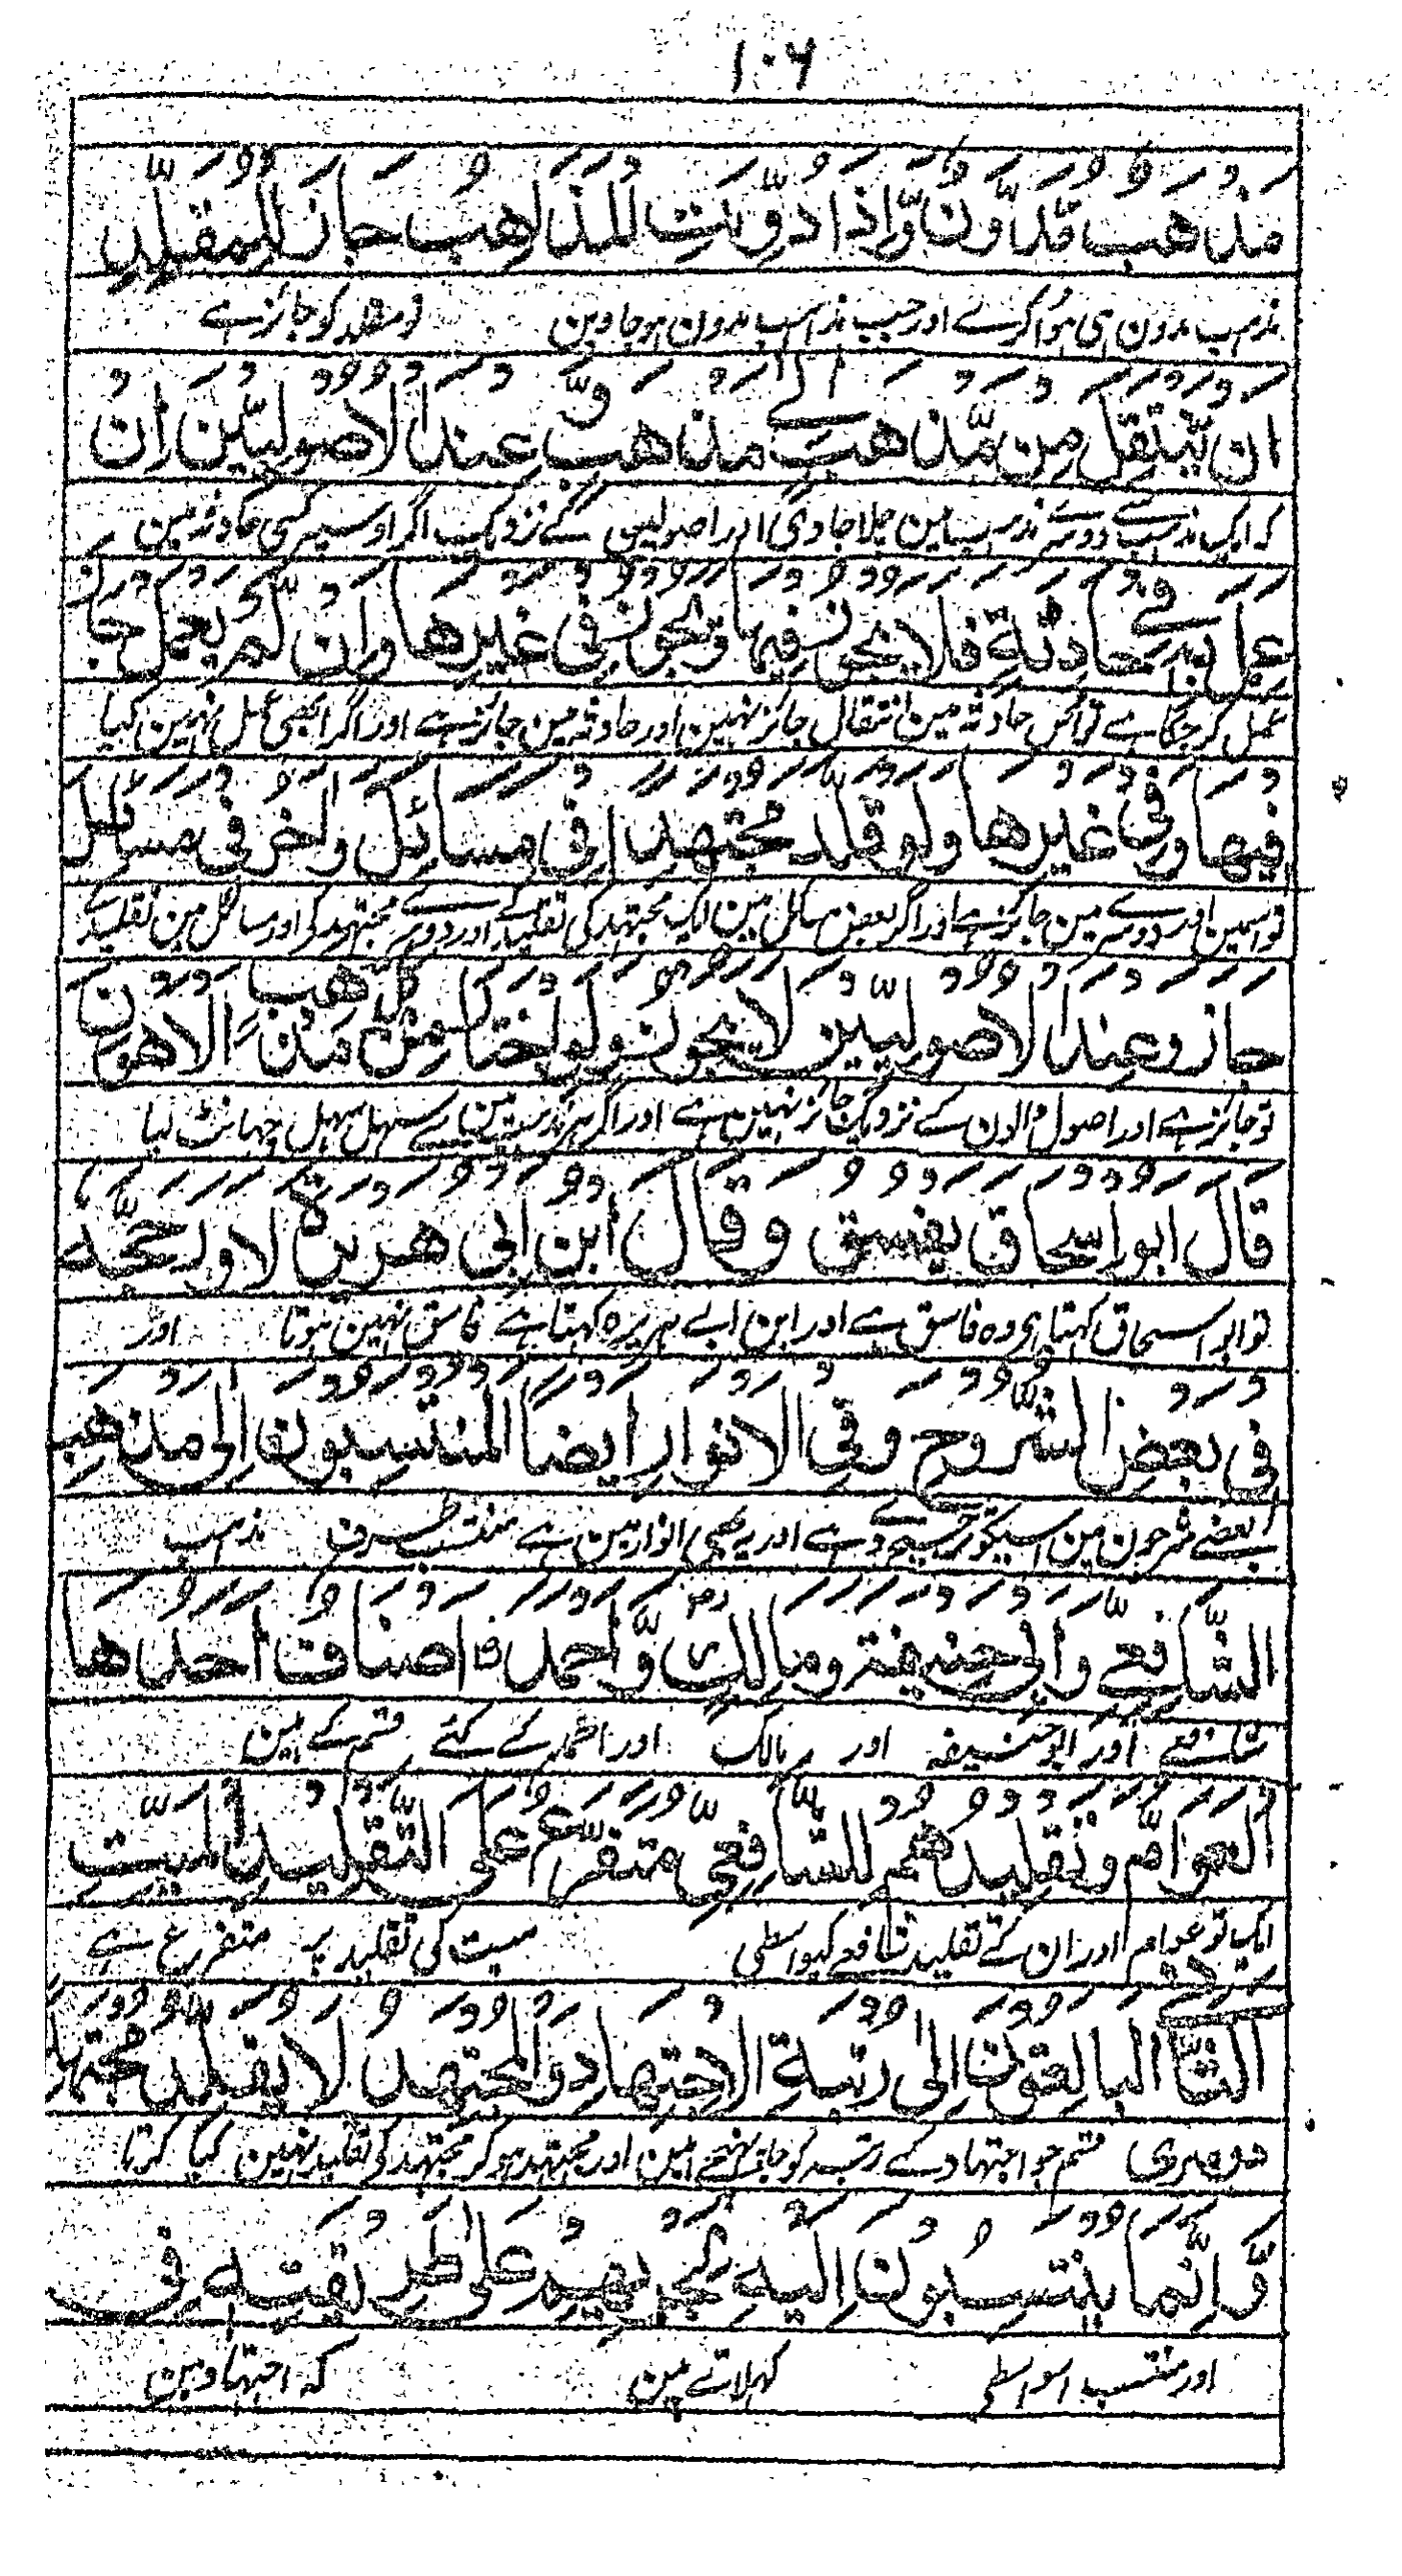 ۱۰۶
مذهب مدّون وّاذا دوّنت المذاهب جاز للمقلّد
مذہب مدون ہی ہوا کرے اور جب مذاہب مدون ہوجاوین تو مقلد کو جائز ہے
ان يّنتقل من مّذهب الے مذهب وّعند الاصوليّين ان
کہ ایک مذہب سے دوسرے مذہب مین چلا جاوی اور اصولیین کے نزدیک اگر اوسپر کسی حادثہ مین
عمل به فے حادثة فلا يجوز فيها ويجوز في غيرها وان لّم يعمل جاز
عمل کر چکا ہے تو اس حادثہ مین انتقال جائز نہین اور حادثہ مین جائز ہے اور اگر ابھی عمل نہین کیا
فيها وفي غيرها ولو قلد مجتهدا في مسائل واخر في مسائل
تو اسمین اور دوسرے مین جائز ہے اور اگر بعض مسائل مین ایک مجتہد کی تقلید کرے اور دوسرے مجتہد کی اور مسائل مین تقلید کرے
جاز وعند الاصوليّين لا يجوز ولو اختار من كل مذهب الاهون
تو جائز ہے اور اصول والون کے نزدیک جائز نہین ہے اور اگر ہر مذہب مین سے سہل سہل چھانٹ لیا
قال ابو اسحاق يفسق وقال ابن ابي هريرة لا ورجّحه
تو ابو اسحاق کہتا ہی وہ فاسق ہے اور ابن ابے ہریرہ کہتا ہے فاسق نہین ہوتا اور
في بعض الشّروح وفي الانوار ايضا المنتسبون الى مذهب
بعضے شرحون مین اسیکو ترجیح دے ہے اور یہ بھی انوار مین ہے منتسب طرف مذہب
الشّافعے وابي حنيفة ومالك وّاحمد اصناف احدها
شافعے اور ابو حنیفہ اور مالک اور احمد کے کئے قسم کے ہین
العوامّ وتقليدهم للشّافعي متفرّع على التّقليد الميّت
ایک تو عوام اور ان کے تقلید شافعے کیواسطی میت کی تقلید پر متفرع ہے
الثّانے البالغون الى رتبة الاجتهاد والمجتهد لا يقلد مجتهدا
دوسری قسم جو اجتہاد کے رتبہ کو جا پہنچے ہین اور مجتہد ہو کر مجتہد کی تقلید نہین کیا کرتا
وّانّما ينتسبون اليه لجريهم على طريقته في
اور منتسب اسواسطی کہلاتے ہین کہ اجتہاد مین